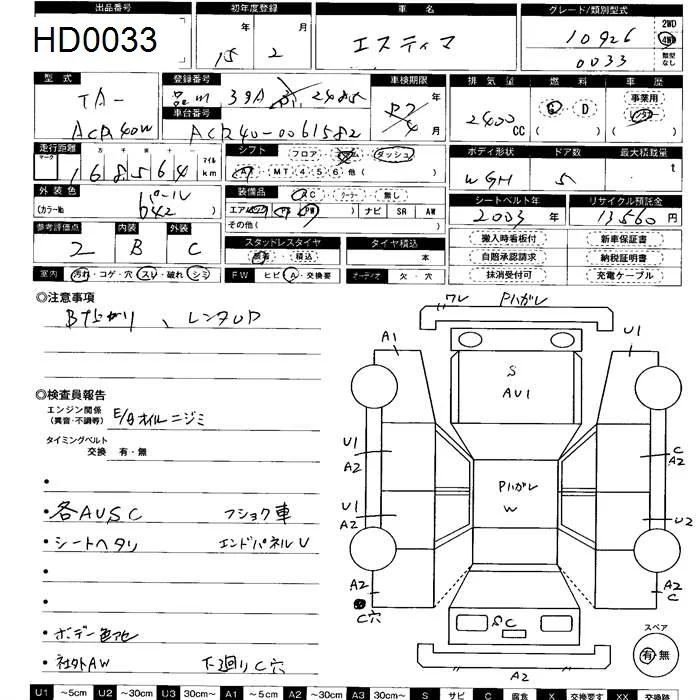 出品番号 初年度登録 車名 グレード/類別型式
HD0033 年 月 エスティマ 10926 2WD 4WD
15 2 0033 類型なし
型式 登録番号 車検期限 排気量 燃料 車歴
TA- 年 2400 CC G D 事業用
車台番号 月 ( ) レンタ
ACR40W ACR40-0061582 ( )
走行距離 シフト フロア コラム ダッシュ ボディ形状 ドア数 最大積載量
マーク 十 万 千 百 マイル
168564 km AT MT 4 5 6 他 ( ) WGH 5 t
外装色 パール 装備品 AC クーラー 無し シートベルト年 リサイクル預託金
(カラーNo 042 ) エアバッグ PS PW ナビ SR AW 2003年 13560円
その他( )
参考評価点 内装 外装 スタッドレスタイヤ タイヤ積込 搬入時看板付 新車保証書
2 B C 装着 積込 本 自賠承認請求 納税証明書
室内 汚れ・コゲ・穴 スレ・破れ シミ FW ヒビ A・交換要 オーディオ 欠・穴 抹消受付可 発電ケーブル
◎注意事項
B下ガリ 、レンタUP
◎検査員報告
エンジン関係
(異音・不調等) E/gオイルニジミ
タイミングベルト
交換 有・無
・各AUSC フショク車
・シートヘタリ エンドパネルU
・ボデー色アセ
・社外AW 下廻りC穴
ワレ Pハガレ
A1 U1
S
AU1
U1
A2
C
A2
Pハガレ
W
U1
A2
U2
A2
C穴
A2
C
SC
A2
スペア
有 無
U1 ~5cm U2 ~30cm U3 30cm~ A1 ~5cm A2 ~30cm A3 30cm~ S サビ C 腐食 X 交換要す XX 交換跡